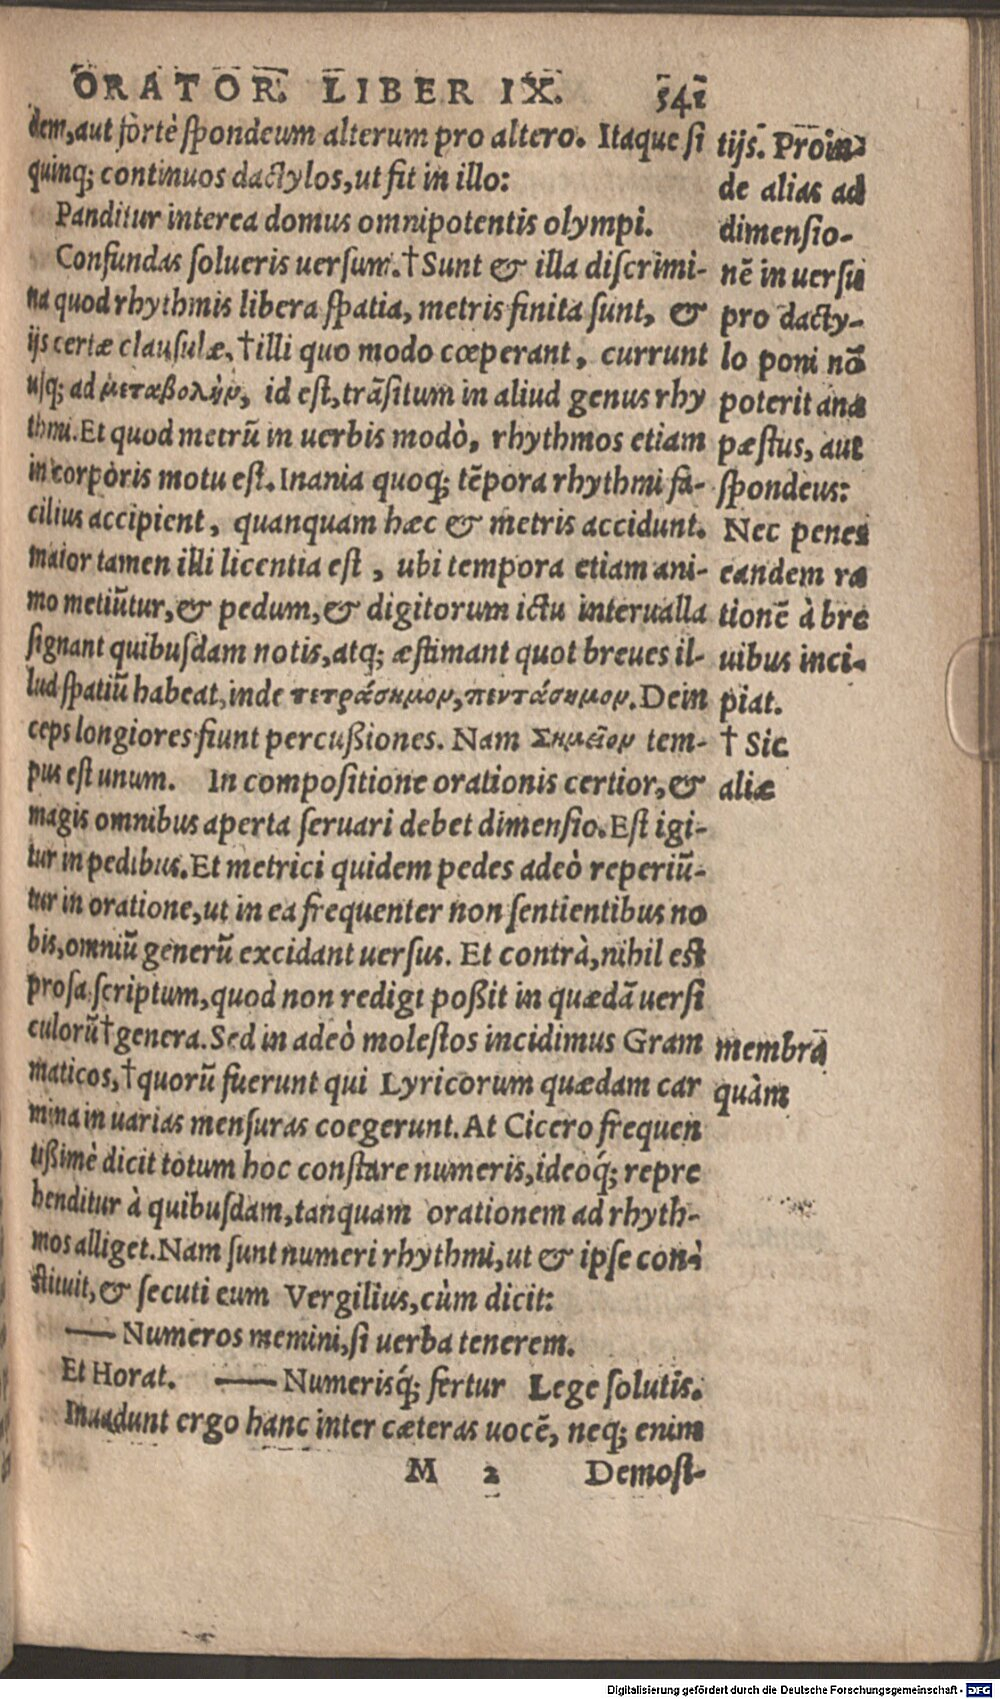 ORATOR. LIBER IX. 541
dem, aut fortè spondeum alterum pro altero. Itaque si
quinq; continuos dactylos, ut fit in illo:
Panditur interea domus omnipotentis olympi.
Confundas solueris uersum. † Sunt & illa discrimi-
na quod rhythmis libera spatia, metris finita sunt, &
ijs certæ clausulæ, † illi quo modo cœperant, currunt
usq; ad μεταβολὴν, id est, trãsitum in aliud genus rhy
thmi. Et quod metrũ in uerbis modò, rhythmos etiam
in corporis motu est. Inania quoq; tẽpora rhythmi fa-
cilius accipient, quanquam hæc & metris accidunt.
maior tamen illi licentia est, ubi tempora etiam ani-
mo metiũtur, & pedum, & digitorum ictu interualla
signant quibusdam notis, atq; æstimant quot breues il-
lud spatiũ habeat, inde τετράσημον, πεντάσημον. Dein
ceps longiores fiunt percußiones. Nam Σημεῖον tem-
pus est unum. In compositione orationis certior, &
magis omnibus aperta seruari debet dimensio. Est igi-
tur in pedibus. Et metrici quidem pedes adeò reperiũ-
tur in oratione, ut in ea frequenter non sentientibus no
bis, omniũ generũ excidant uersus. Et contrà, nihil est
prosa scriptum, quod non redigi poßit in quædã uersi
culorũ † genera. Sed in adeò molestos incidimus Gram
maticos, † quorũ fuerunt qui Lyricorum quædam car
mina in uarias mensuras coegerunt. At Cicero frequen
tißimè dicit totum hoc constare numeris, ideoq́; repre
henditur à quibusdam, tanquam orationem ad rhyth-
mos alliget. Nam sunt numeri rhythmi, ut & ipse con-
stituit, & secuti eum Vergilius, cùm dicit:
— Numeros memini, si uerba tenerem.
Et Horat. — Numerisq́; fertur Lege solutis.
Inuadunt ergo hanc inter cæteras uocẽ, neq; enim
M 2 Demost-
tijs. Proin-
de alias ad
dimensio-
nẽ in uersu
pro dacty-
lo poni nõ
poterit ana
pæstus, aut
spondeus:
Nec penes
eandem ra
tionẽ à bre
uibus inci-
piat.
† Sic
aliæ
membrã
quàm
Digitalisierung gefördert durch die Deutsche Forschungsgemeinschaft - DFG